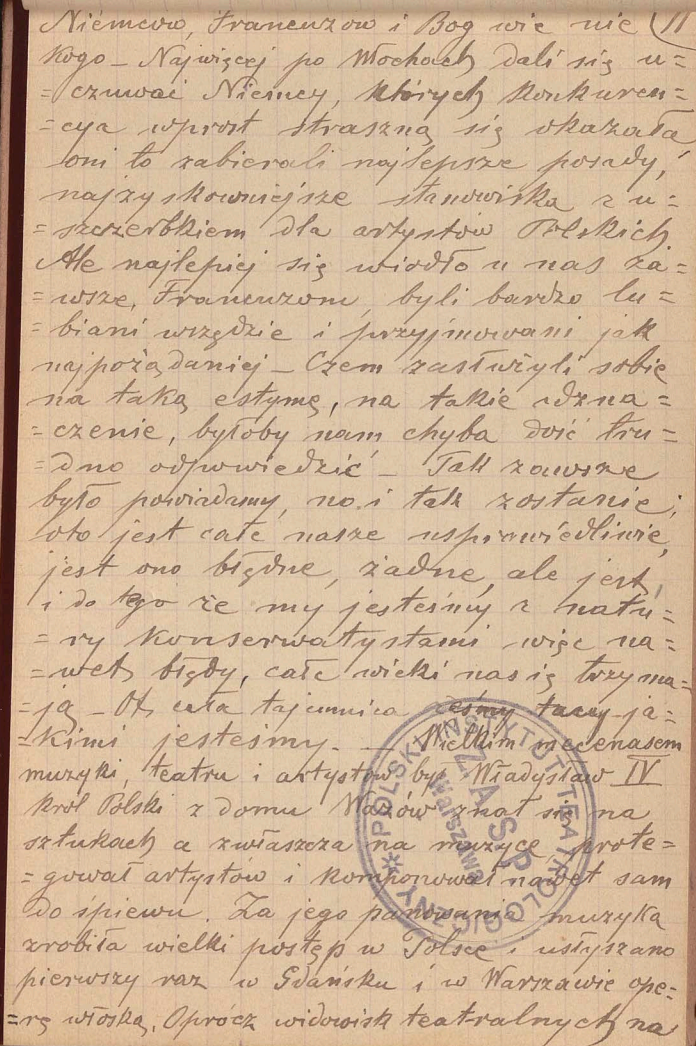 Niemców, Francuzów i Bóg wie nie 11
kogo – Najwięcej po Włochach dali się u=
=czuwać Niemcy, których konkuren=
=cya wprost straszną się okazała,
oni to zabierali najlepsze posady,
najzyskowniejsze stanowiska z u=
=szczerbkiem dla artystów Polskich
Ale najlepiej się wiodło u nas za=
=wsze, Francuzom, byli bardzo lu=
=biani wszędzie i przyjmowani jak
najpożądaniej – Czem zasłużyli sobie
na taką estymę, na takie odzna=
=czenie, byłoby nam chyba dość tru=
=dno odpowiedzieć – Tak zawsze
było powiadamy, no i tak zostanie;
oto jest całe nasze usprawiedliwie,
jest ono błędne, żadne, ale jest,
i do tego że my jesteśmy z natu=
=ry konserwatystami więc na=
=wet błędy, całe wieki nas się trzyma=
=ją – Ot cała tajemnica żeśmy tacy ja=
=kimi jesteśmy. — Wielkim mecenasem
muzyki, teatru i artystów był Władysław IV
król Polski z domu Wazów znał się na
sztukach a zwłaszcza na muzyce prote=
=gował artystów i komponował nawet sam
do śpiewu. Za jego panowania muzyka
zrobiła wielki postęp w Polsce i usłyszano
pierwszy raz w Gdańsku i w Warszawie ope=
=rę włoską. Oprócz widowisk teatralnych na
POLSKI INSTYTUT TEATROLOGICZNY
Z.A.S.P.
Warszawa